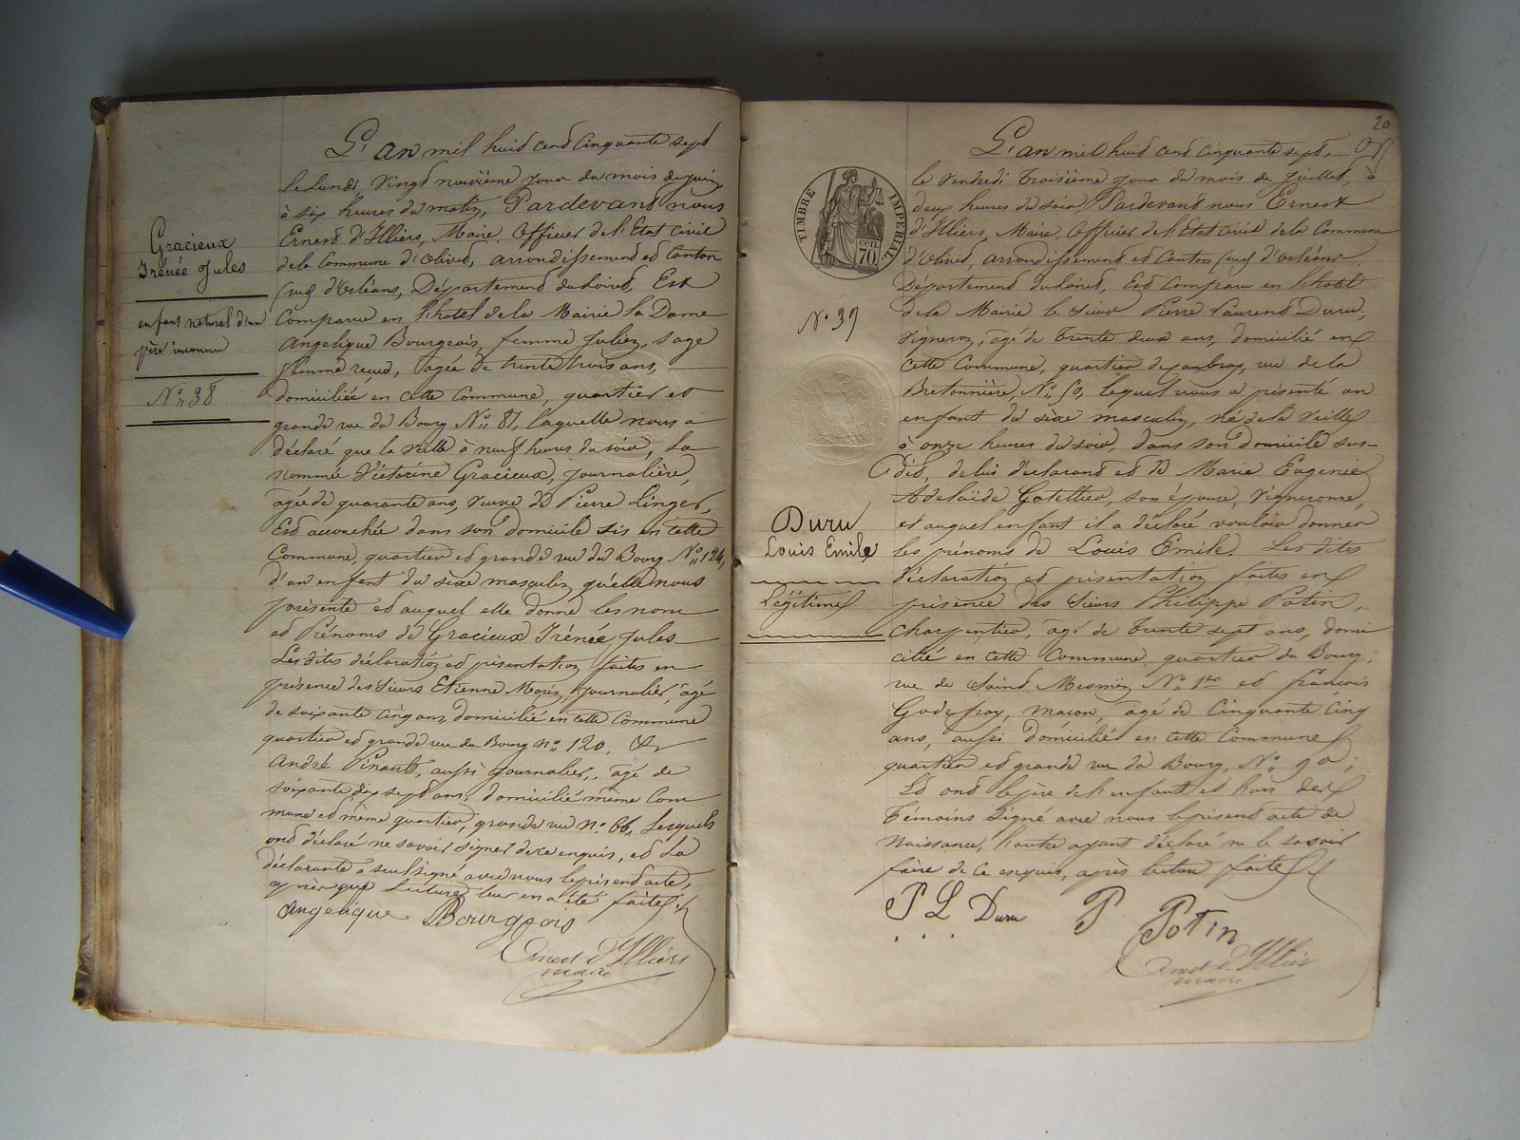 Gracieux
Irénée Jules
enfant naturel d'un
père inconnu
N° 38
L'an mil huit cent cinquante sept
le Lundi, vingt neuvième jour du mois de juin,
à six heures du matin, Pardevant nous
Ernest d'Illiers, Maire, Officier de l'Etat Civil
de la Commune d'Olivet, arrondissement et Canton
Sud d'Orléans, Département du Loiret, Est
Comparue en l'hotel de la Mairie la Dame
Angelique Bourgeois, femme Julien, Sage
femme reçue, agée de trente trois ans,
domiciliée en cette Commune, quartier et
grande rue du Bourg N° 81, laquelle nous a
déclaré que la veille à neuf heures du soir, la
nommée Victorine Gracieux, Journalière,
agée de quarante ans, veuve de Pierre Linger,
Est accouchée dans son domicile sis en cette
Commune, quartier et grande rue du Bourg N° 124,
d'un enfant du sèxe masculin, qu'elle nous
présente et auquel elle donne les nom
et Prénoms de Gracieux Irénée Jules
Les dites déclaration et présentation faites en
présence des Sieurs Etienne Marin, journalier, agé
de soixante cinq ans, domicilié en cette Commune
quartier et grande rue du Bourg n° 120, Et
André Pinault, aussi journalier, agé de
soixante dix sept ans, domicilié même Com
mune et même quartier, grande rue n° 66, Lesquels
ont déclaré ne savoir signer de ce enquis, et la
déclarante a seule signé avec nous le présent acte,
après que lecture leur en a été faite
Angelique Bourgeois
Ernest d'Illiers
maire
20
TIMBRE IMPERIAL
70
N° 39
Duru
Louis Emile
Légitime
L'an mil huit cent cinquante sept,
le Vendredi troisième jour du mois de Juillet, à
deux heures du soir, Pardevant nous Ernest
d'Illiers, Maire, Officier de l'Etat Civil de la Commune
d'Olivet, arrondissement et Canton Sud d'Orléans,
Département du Loiret, Est Comparu en l'hotel
de la Mairie le Sieur Pierre Laurent Duru,
Vigneron, agé de trente deux ans, domicilié en
cette Commune, quartier de , rue de la
Bretonnière, N° 50, lequel nous a présenté un
enfant du sèxe masculin, né de la veille
à onze heures du soir, dans son domicile sus-
dit, de lui déclarant et de Marie Eugenie
Adelaïde Gatellier, son épouse, Vigneronne,
et auquel enfant il a déclaré vouloir donner
les prénoms de Louis Emile. Les dites
déclaration et présentation faites en
présence des Sieurs Philippe Potin,
charpentier, agé de trente sept ans, domi
cilié en cette Commune quartier du Bourg,
rue de Saint Mesmin, N° 1er et françois
Godefroy, macon, agé de cinquante cinq
ans, aussi domicilié en cette Commune
quartier et grande rue du Bourg, N° 90;
Et ont le père de l'enfant et l'un des
témoins signé avec nous le présent acte de
Naissance, l'autre ayant déclaré ne le savoir
faire de ce enquis, après lecture faite
P L Duru P Potin
Ernest d'Illiers
maire